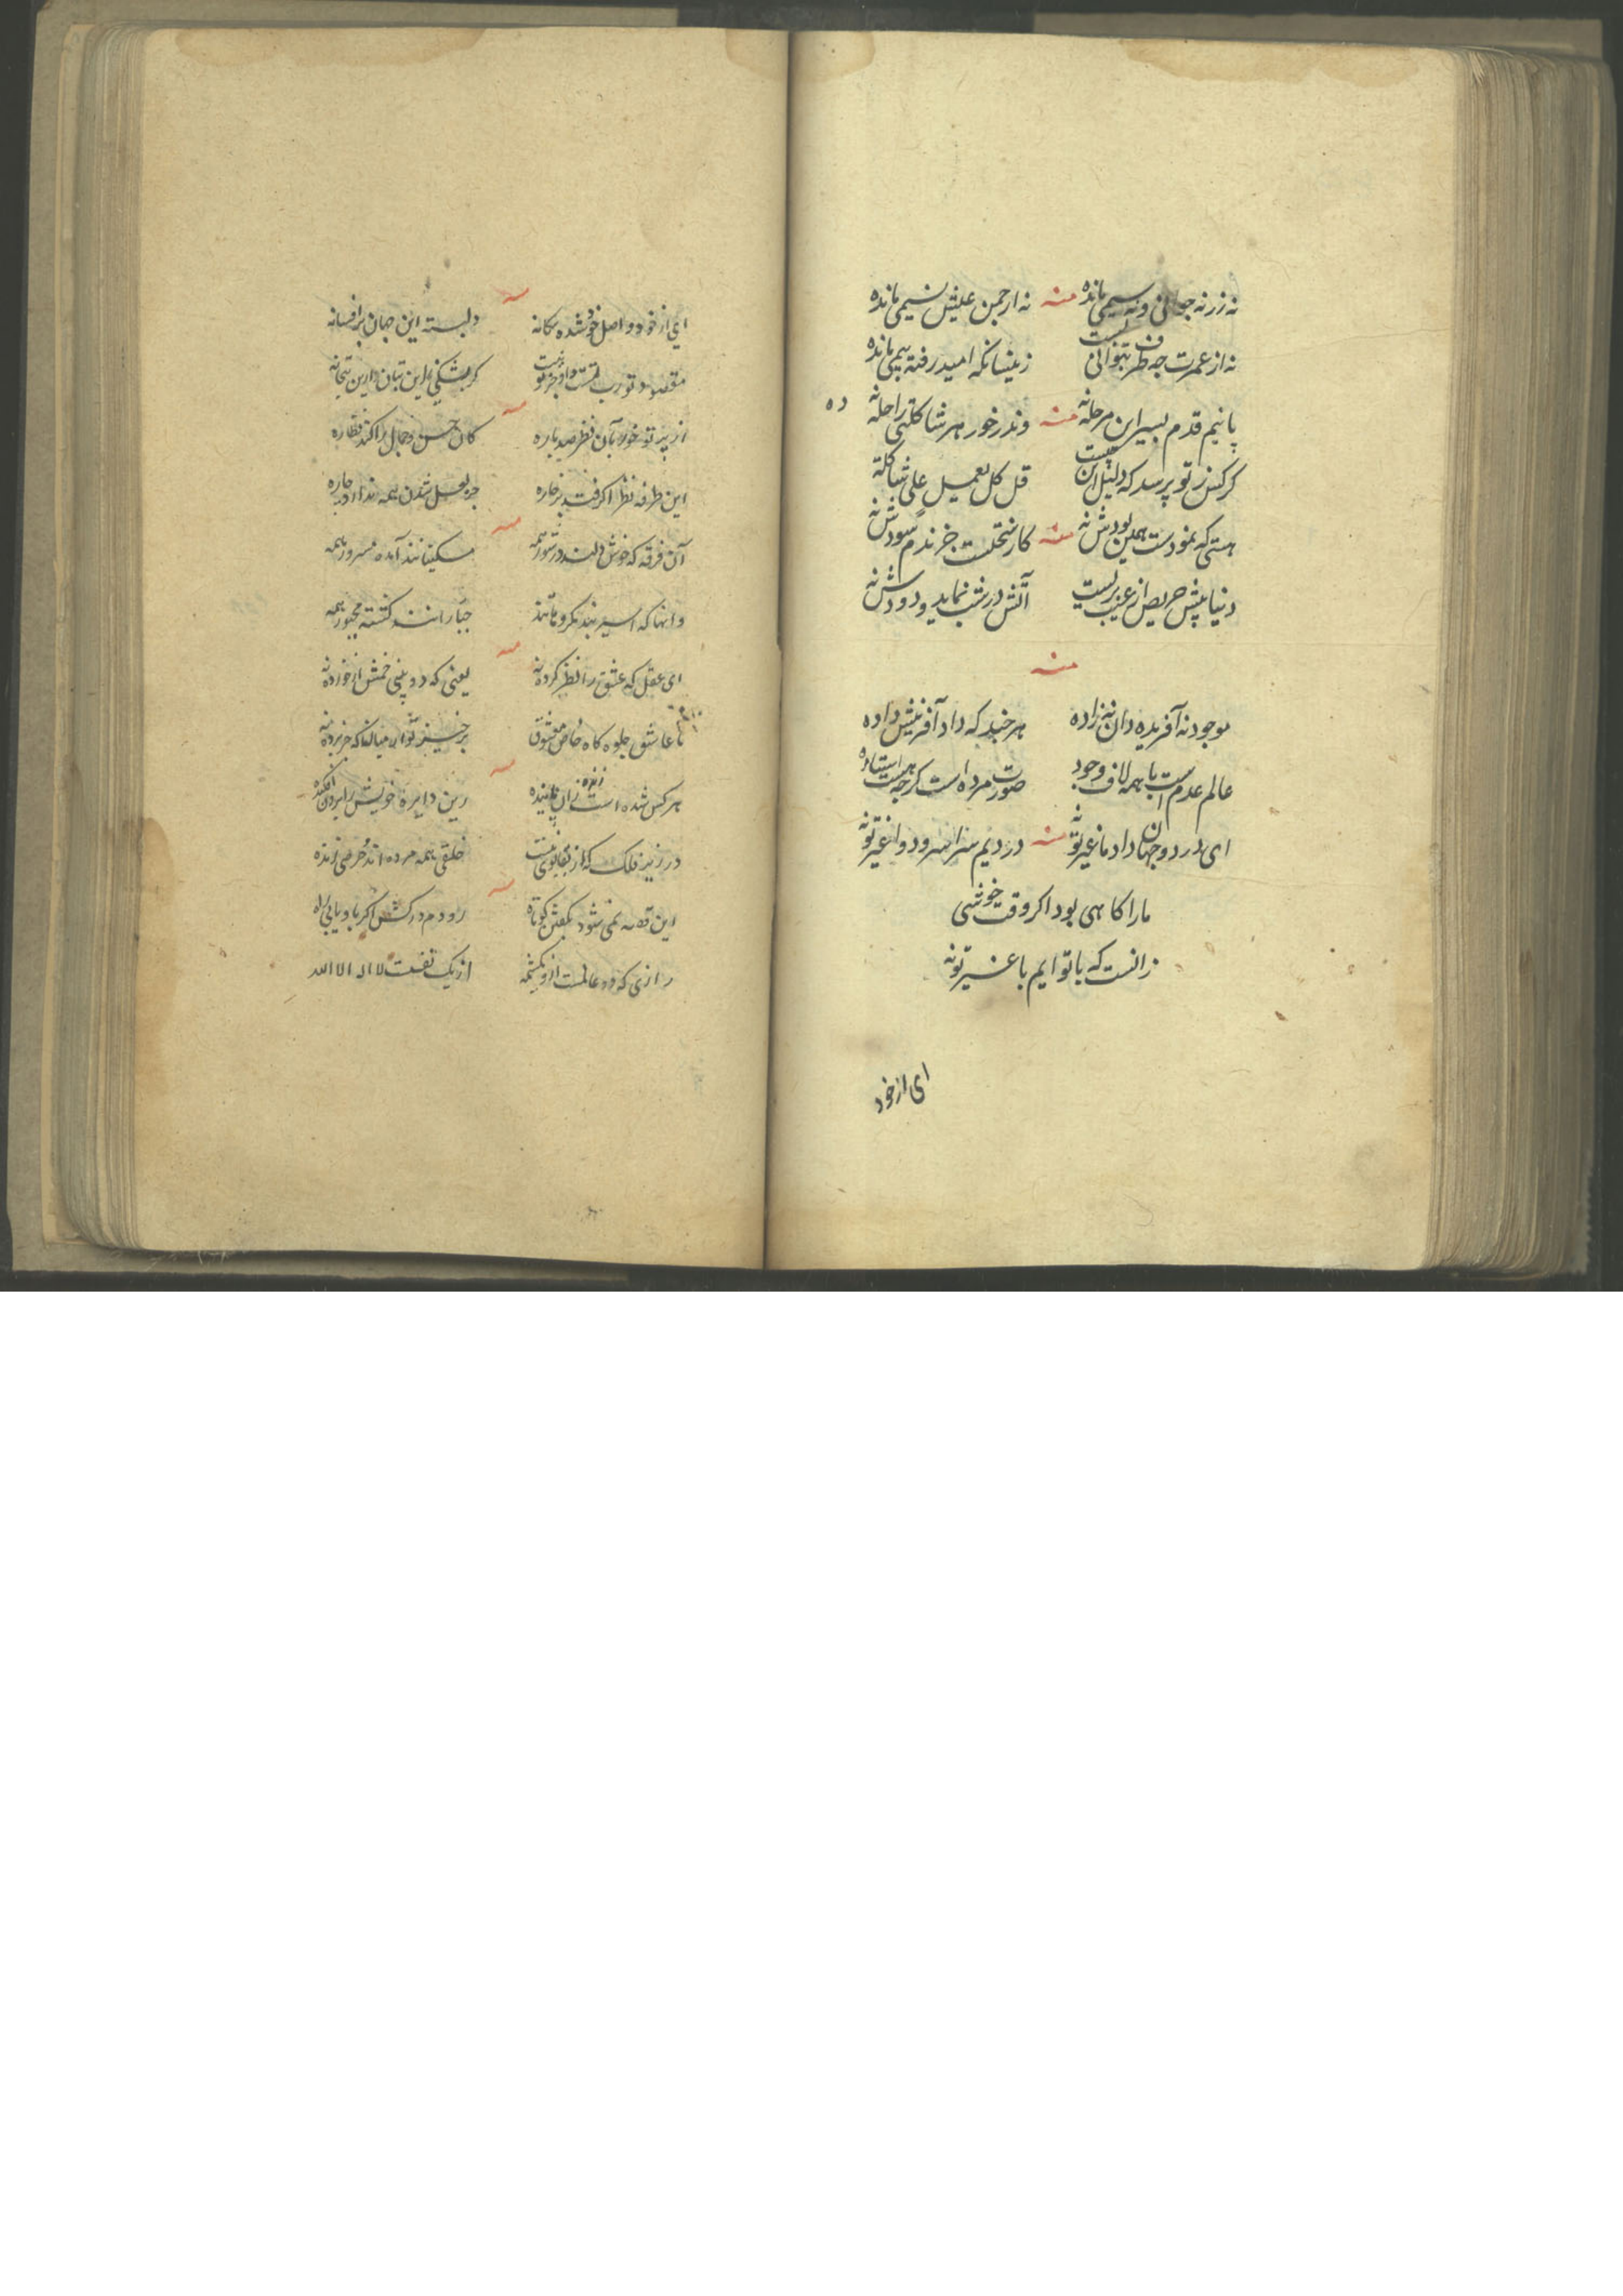 نه زر نه جوانی و نه سیمی مانده منه نه از چمن عیش نسیمی مانده
نه از عمرت چه طرف بتوانی بست زینسانکه امید رفته بیمی مانده
پا نیم قدم بسیر این مرحله نه منه وندر خور هر شاکلتی راحله نه
گر کس ز تو پرسد که دلیل این چیست قل کل یعمل علی شاکلته
هستی که نمودست همین بودش نه منه کار جز ندم سودش نه
دنیا پیش حریص از عیب بریست آتش در شب نماید و دودش نه
منه
موجود نه آفریده دان نه زاده هر چند که داد آفرینش داده
عالم عدم است با همه لاف وجود صورت مرده است گرچه هست استاده
ای درد دو جهان داد ما غیر تو نه منه در دیم سزا سرود وا غیر تو نه
ما را گاهی بود اگر وقت خوشی
زانست که با توایم با غیر تو نه
ای از خود
ای از خود و اصل خود شده بیگانه دلبسته این جهان پر افسانه
مقصود تو رب تست و او جز تو گر بشکنی این بتان درین بتخانه
از پرتو خور بآن نظر صد باره کان حسن و جمال را کند نظاره
این طرفه نظر اگر فتد بر خاره جز لعل شدن همه ندارد چاره
آن فرقه که خوش دلند در شور همه مسکینانند آمده مسرور همه
وانها که اسیر بند مکر و جبارانند گشته مجبور همه
ای عقل که عشق را نظر کرده نه یعنی که دو پنی خمش از خورده نه
تا عاشق جلوه گاه خاص معشوق برخیز تو از میان که جز پرده نه
هر کس شده است زان زنده زین دایره خویش را برون افکنده
در زیر فلک که از بقا بوی نیست خلقی همه مرده اند حرصی زنده
این قصه نمی شود بگفتن کوتاه رو دم درکش اگر یابی راه
رازی که دو عالمست ازو یک شمه از یک نفست لا اله الا الله